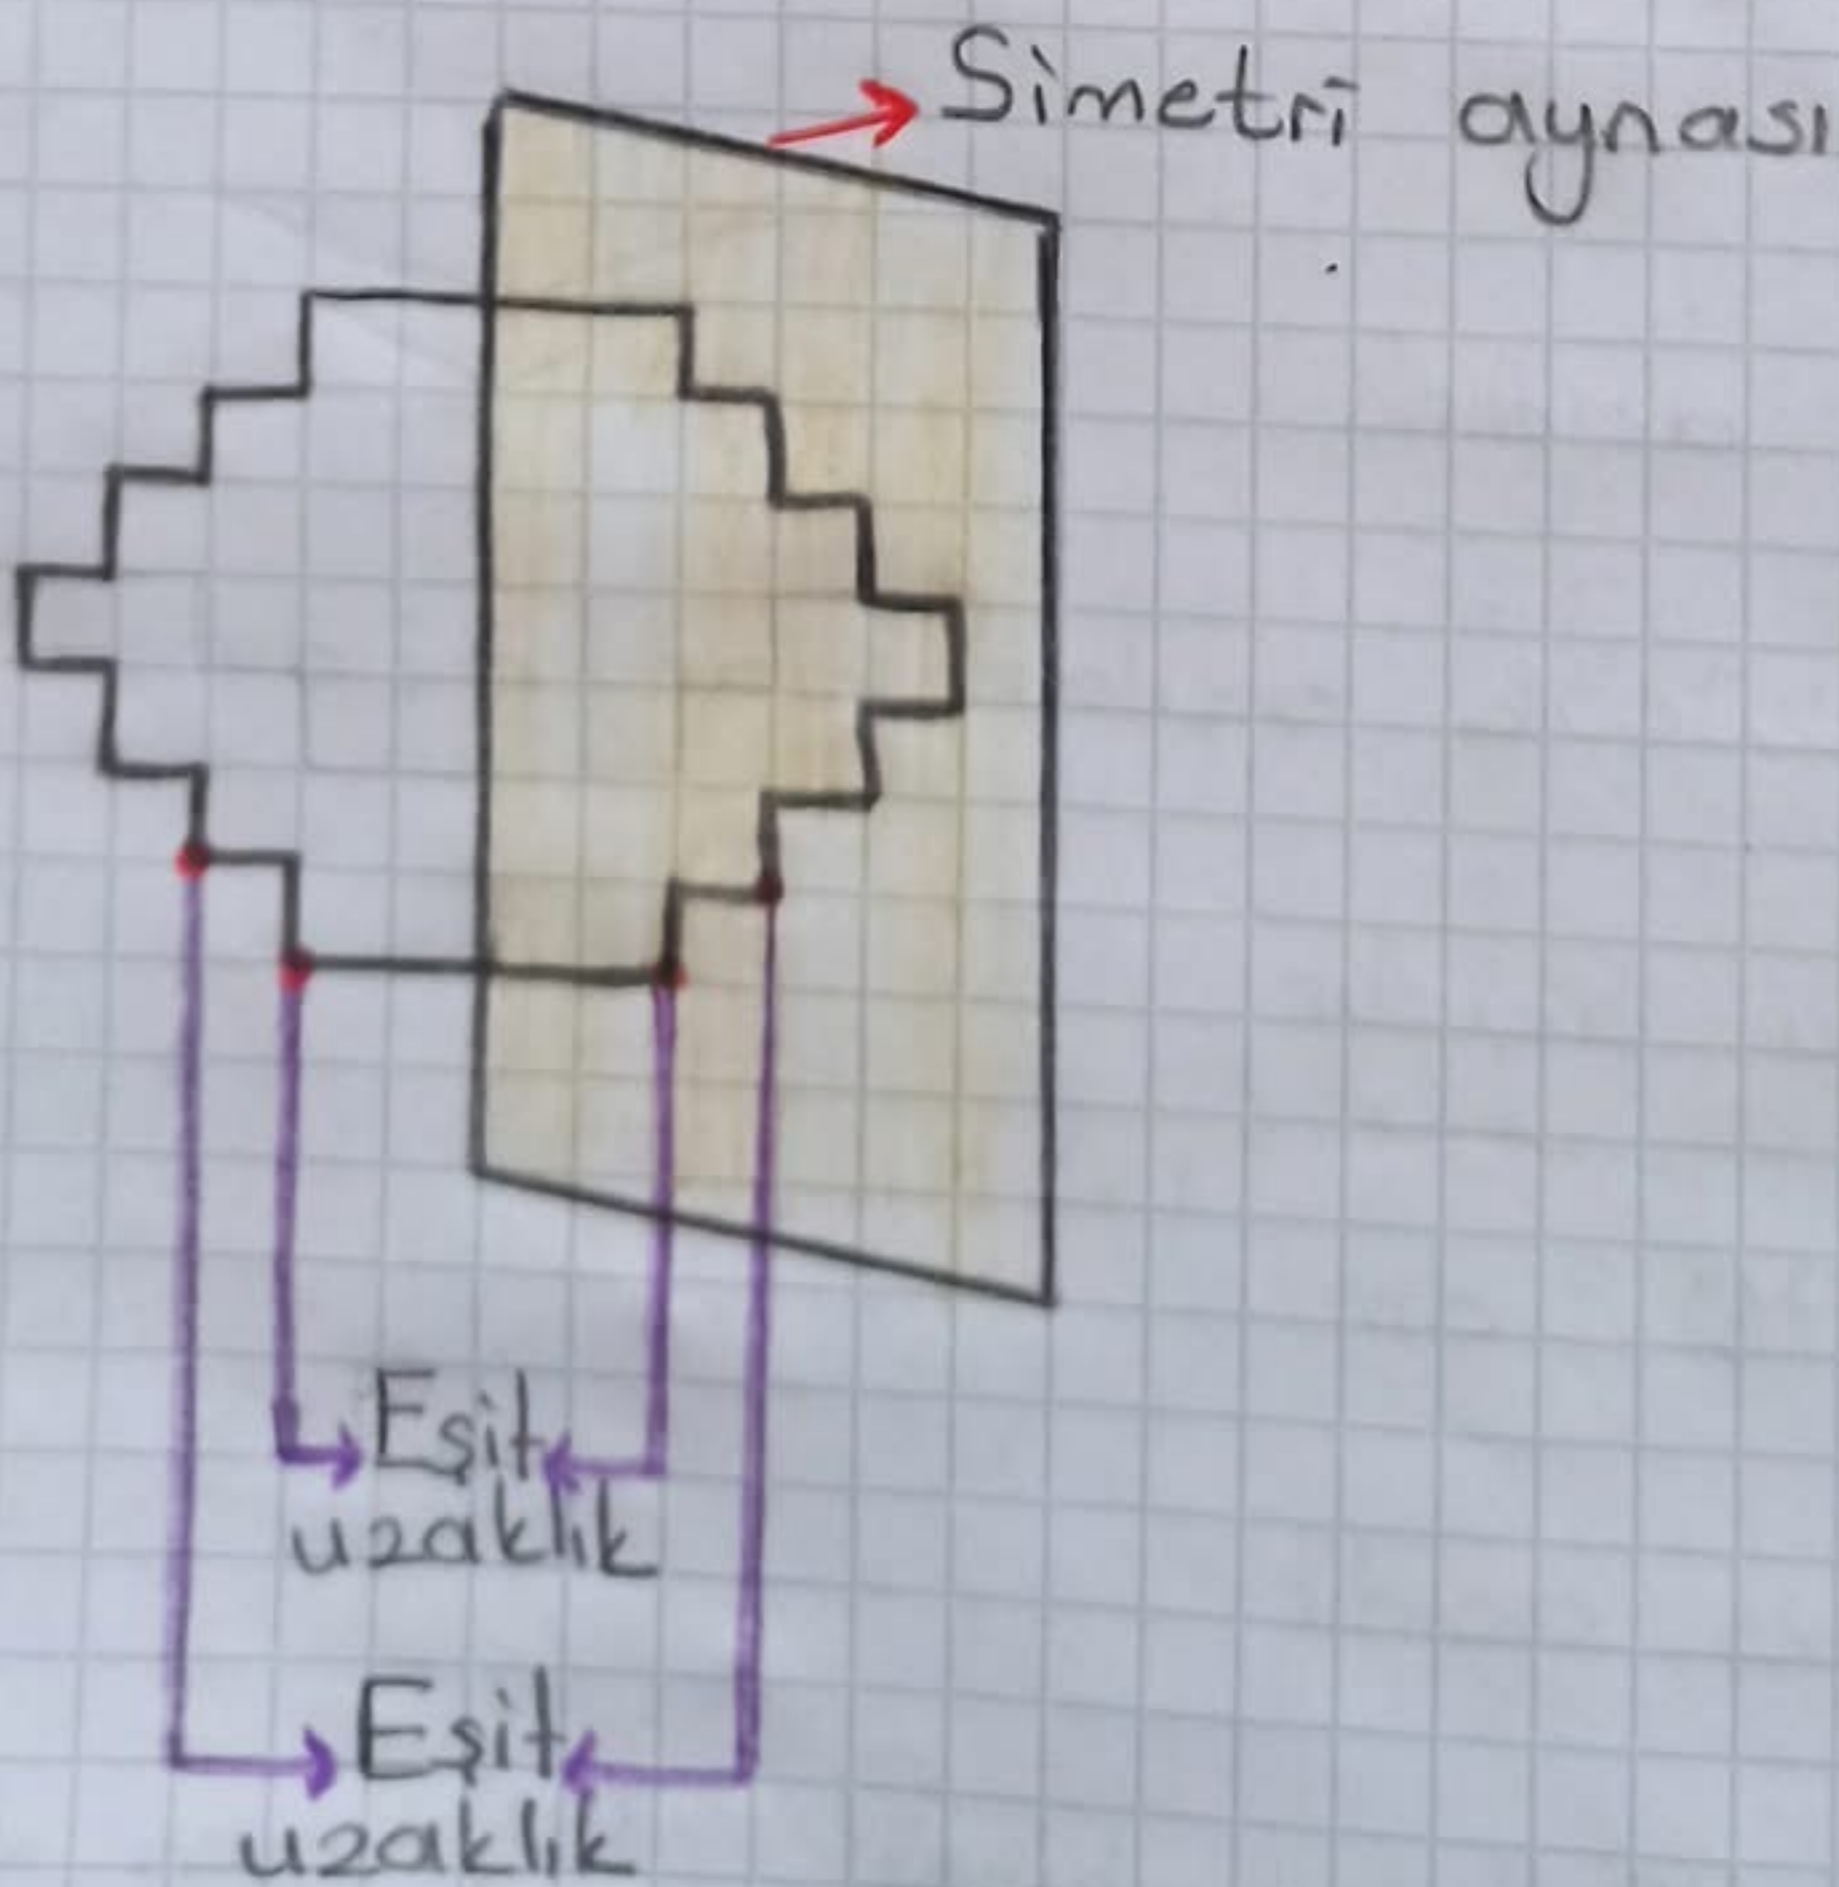 Simetri aynası
Eşit
uzaklık
Eşit
uzaklık